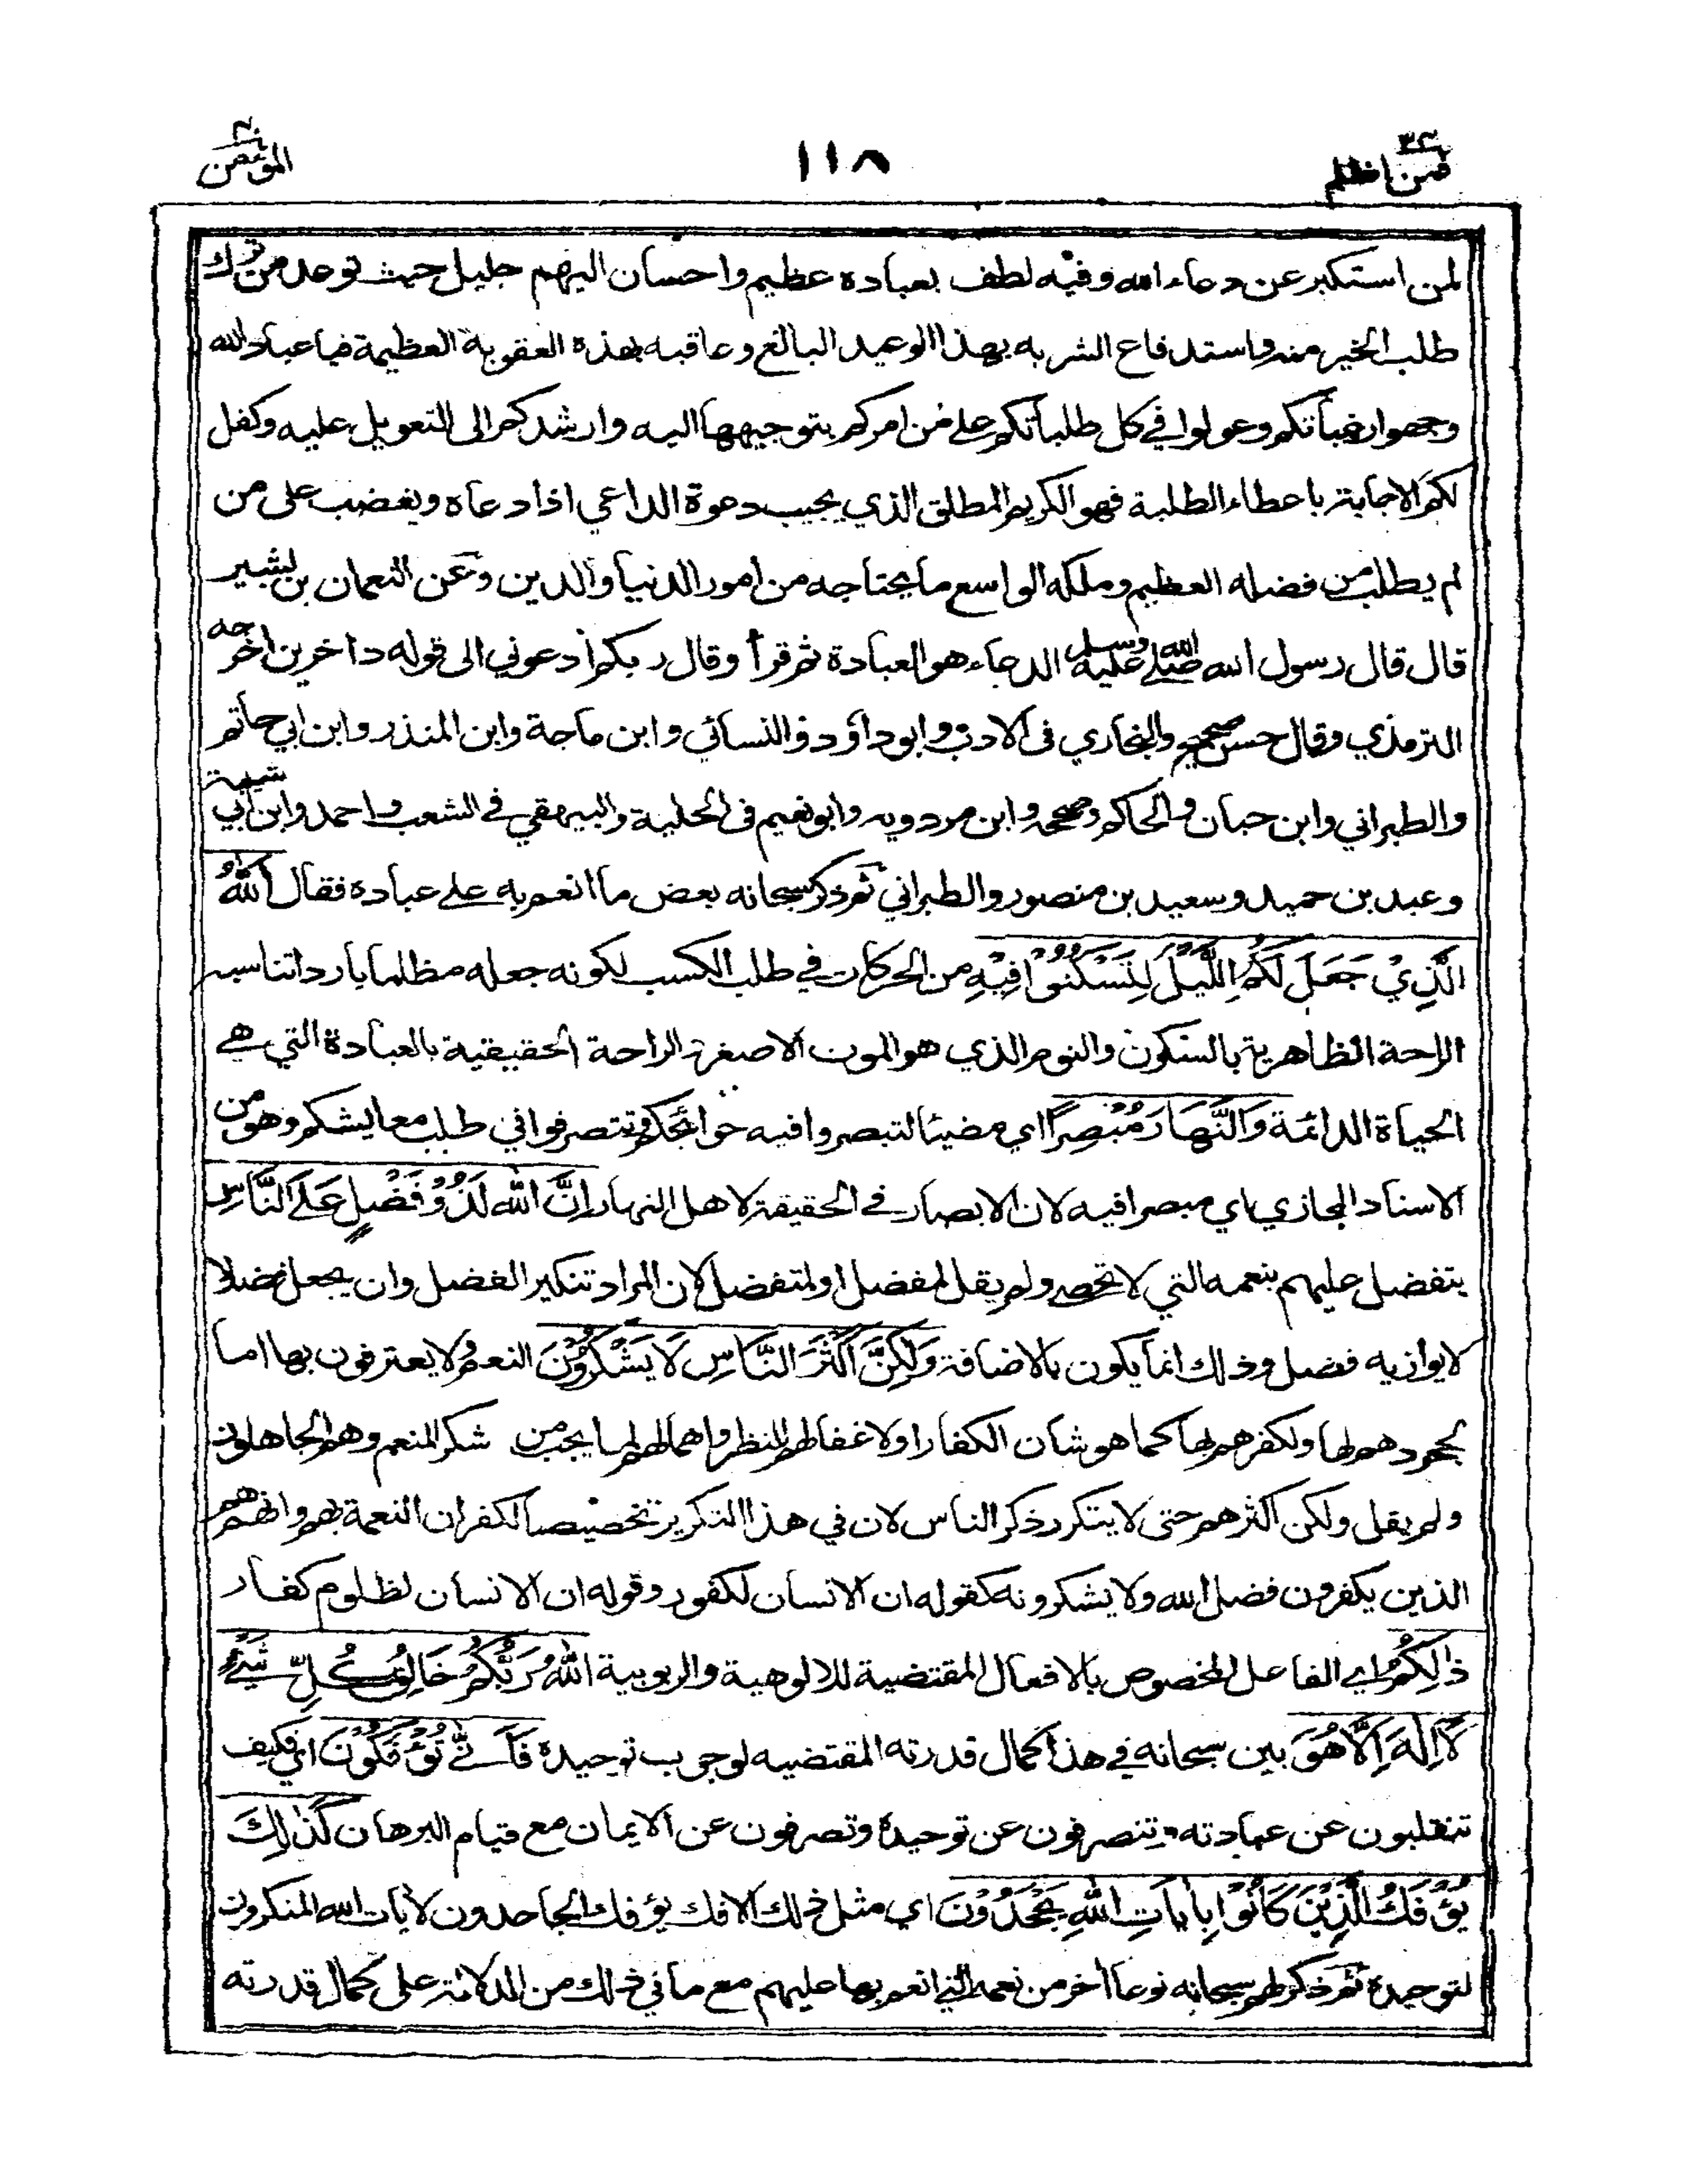 فمن اظلم ٢٤
١١٨
المؤمن ٤٠
لمن استكبر عن دعاء الله وفيه لطف بعباده عظيم واحسان اليهم جليل حيث توعد من ترك
طلب الخير منه واستدفاع الشر به بهذا الوعيد البالغ وعاقبه بهذه العقوبة العظيمة فيا عباد الله
وجهوا رغباتكم وعولوا في كل طلباتكم على من امركم بتوجيهها اليه وارشدكم الى التعويل عليه وكفل
لكم الاجابة باعطاء الطلبة فهو الكريم المطلق الذي يجيب دعوة الداعي اذا دعاه ويغضب على من
لم يطلب من فضله العظيم وملكه الواسع ما يحتاجه من امور الدنيا والدين وعن النعمان بن بشير
قال قال رسول الله صلى الله عليه وسلم الدعاء هو العبادة ثم قرأ وقال ربكم ادعوني الى قوله داخرين اخرجه
الترمذي وقال حسن صحيح والبخاري في الادب وابو داؤد والنسائي وابن ماجة وابن المنذر وابن ابي حاتم
والطبراني وابن حبان والحاكم وصححه وابن مردويه وابو نعيم في الحلية والبيهقي في الشعب واحمد وابن ابي شيبة
وعبد بن حميد وسعيد بن منصور والطبراني ثم ذكر سبحانه بعض ما انعم به على عباده فقال اَللّٰهُ
الَّذِيْ جَعَلَ لَكُمُ اللَّيْلَ لِتَسْكُنُوْا فِيْهِ من الحركات في طلب الكسب لكونه جعله مظلما باردا تناسبه
الراحة الظاهرية بالسكون والنوم الذي هو الموت الاصغر والراحة الحقيقية بالعبادة التي هي
الحياة الدائمة وَالنَّهَارَ مُبْصِرًا اي مضيئا لتبصروا فيه حوائجكم وتتصرفوا في طلب معايشكم وهو من
الاسناد المجازي اي مبصرا فيه لان الابصار في الحقيقة لاهل النهار اِنَّ اللّٰهَ لَذُوْ فَضْلٍ عَلَى النَّاسِ
يتفضل عليهم بنعمه التي لا تحصى ولم يقل لمفضل او لمتفضل لان المراد تنكير الفضل وان يجعل فضلا
لا يوازيه فضل وذلك انما يكون بالاضافة وَلٰكِنَّ اَكْثَرَ النَّاسِ لَا يَشْكُرُوْنَ النعم ولا يعترفون بها اما
لجحودهم لها ولكفرهم بها كما هو شان الكفار او لاغفالهم للنظر واهمالهم لما يجب من شكر المنعم وهم الجاهلون
ولم يقل ولكن اكثرهم حتى لا يتكرر ذكر الناس لان في هذا التكرير تخصيصا لكفران النعمة بهم وانهم هم
الذين يكفرون فضل الله ولا يشكرونه كقوله ان الانسان لكفور وقوله ان الانسان لظلوم كفار
ذٰلِكُمُ اي الفاعل المخصوص بالافعال المقتضية للالوهية والربوبية اللّٰهُ رَبُّكُمْ خَالِقُ كُلِّ شَيْءٍ
لَا اِلٰهَ اِلَّا هُوَ بين سبحانه في هذا كمال قدرته المقتضيه لوجوب توحيده فَاَنّٰى تُؤْفَكُوْنَ اي فكيف
تنقلبون عن عبادته وتنصرفون عن توحيده وتصرفون عن الايمان مع قيام البرهان كَذٰلِكَ
يُؤْفَكُ الَّذِيْنَ كَانُوْا بِاٰيَاتِ اللّٰهِ يَجْحَدُوْنَ اي مثل ذلك الافك يؤفك الجاحدون لأيات الله المنكرون
لتوحيده ثم ذكر لهم سبحانه نوعا أخر من نعمه التي انعم بها عليهم مع ما في ذلك من الدلالة على كمال قدرته